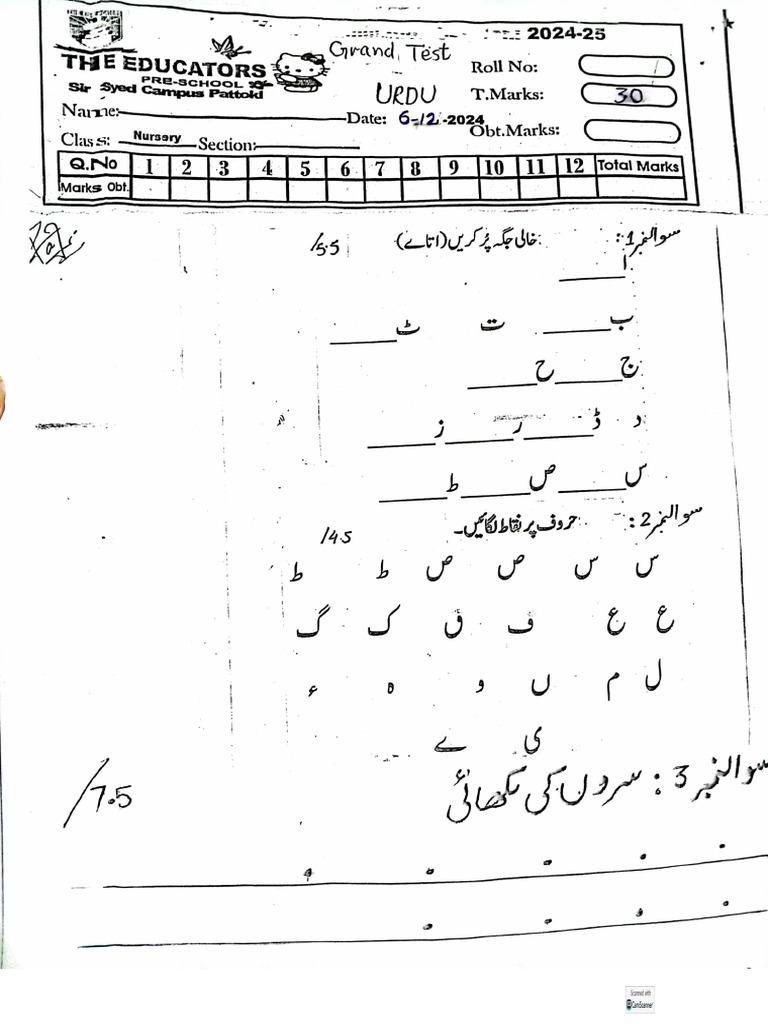 2024-25
THE EDUCATORS
Grand Test
PRE-SCHOOL
Roll No:
Sir Syed Campus Pattoki
URDU
T.Marks: 30
Name:
Date: 6-12-2024
Obt.Marks:
Class: Nursery Section:
Q.No 1 2 3 4 5 6 7 8 9 10 11 12 Total Marks
Marks Obt.
سوالنمبر1: خالی جگہ پُر کریں(ا تا ے) /5.5
ا ____
ب ____ ت ٹ ____
ج ____ ح ____
د ڈ ____ ر ____ ز ____
س ____ ص ____ ط ____
سوالنمبر2: حروف پر نقاط لگائیں۔ /4.5
س س ص ص ط ط
ع ع ف ق ک گ
ل م ں و ہ ء
ی ے
سوالنمبر 3 : سروں کی لکھائی /7.5
Scanned with
CamScanner